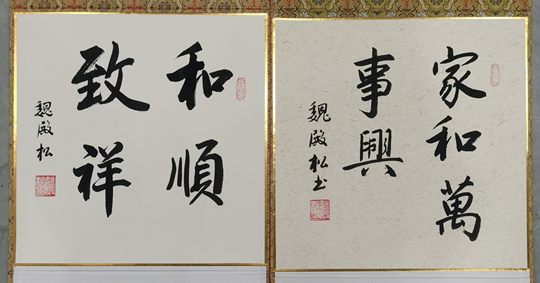 和順
致祥
魏殿松
家和萬
事興
魏殿松书